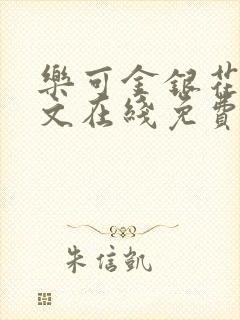 樂可金銀花
文在綫免費
朱信凱